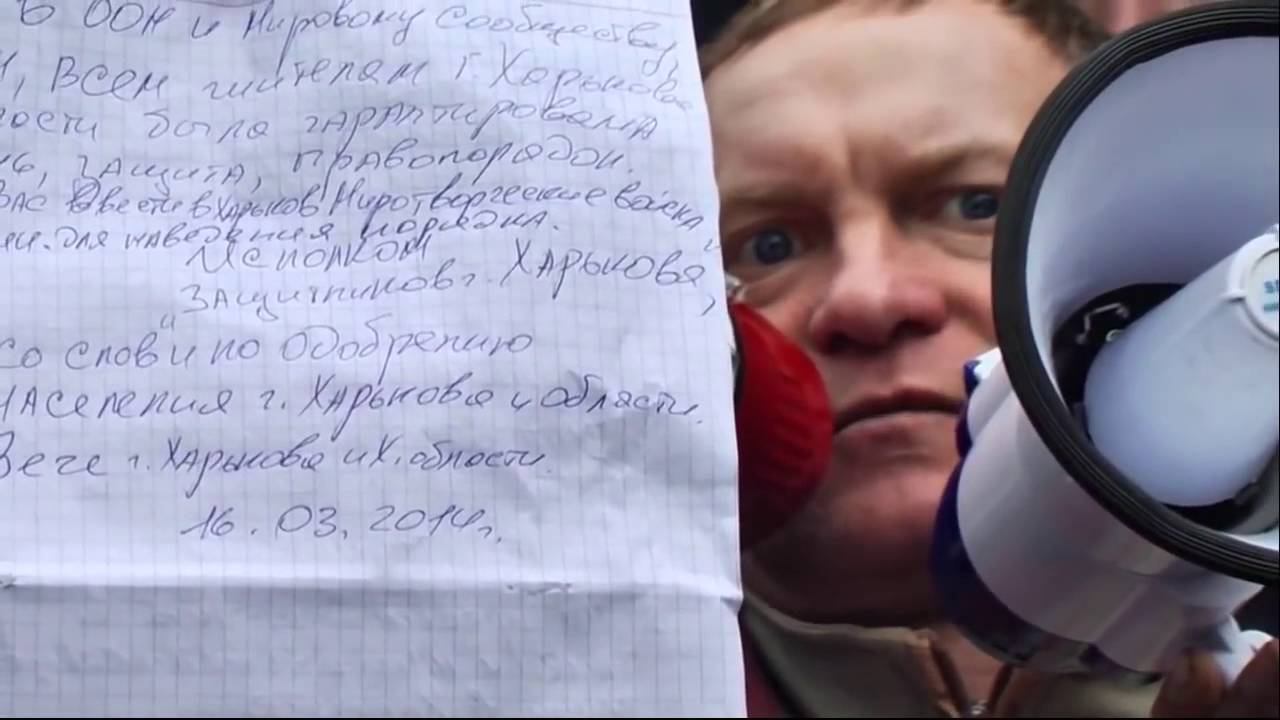 в ООН и Мировому Сообществу,
, Всем жителям г. Харькова
ности была гарантирована
, защита, правопорядок.
Вас ввести в Харьков Миротворческие войска
для наведения порядка.
Исполком
"Защитников г. Харькова"
со слов и по одобрению
населения г. Харькова и области.
Вече г. Харькова и Х. области.
16.03.2014г.